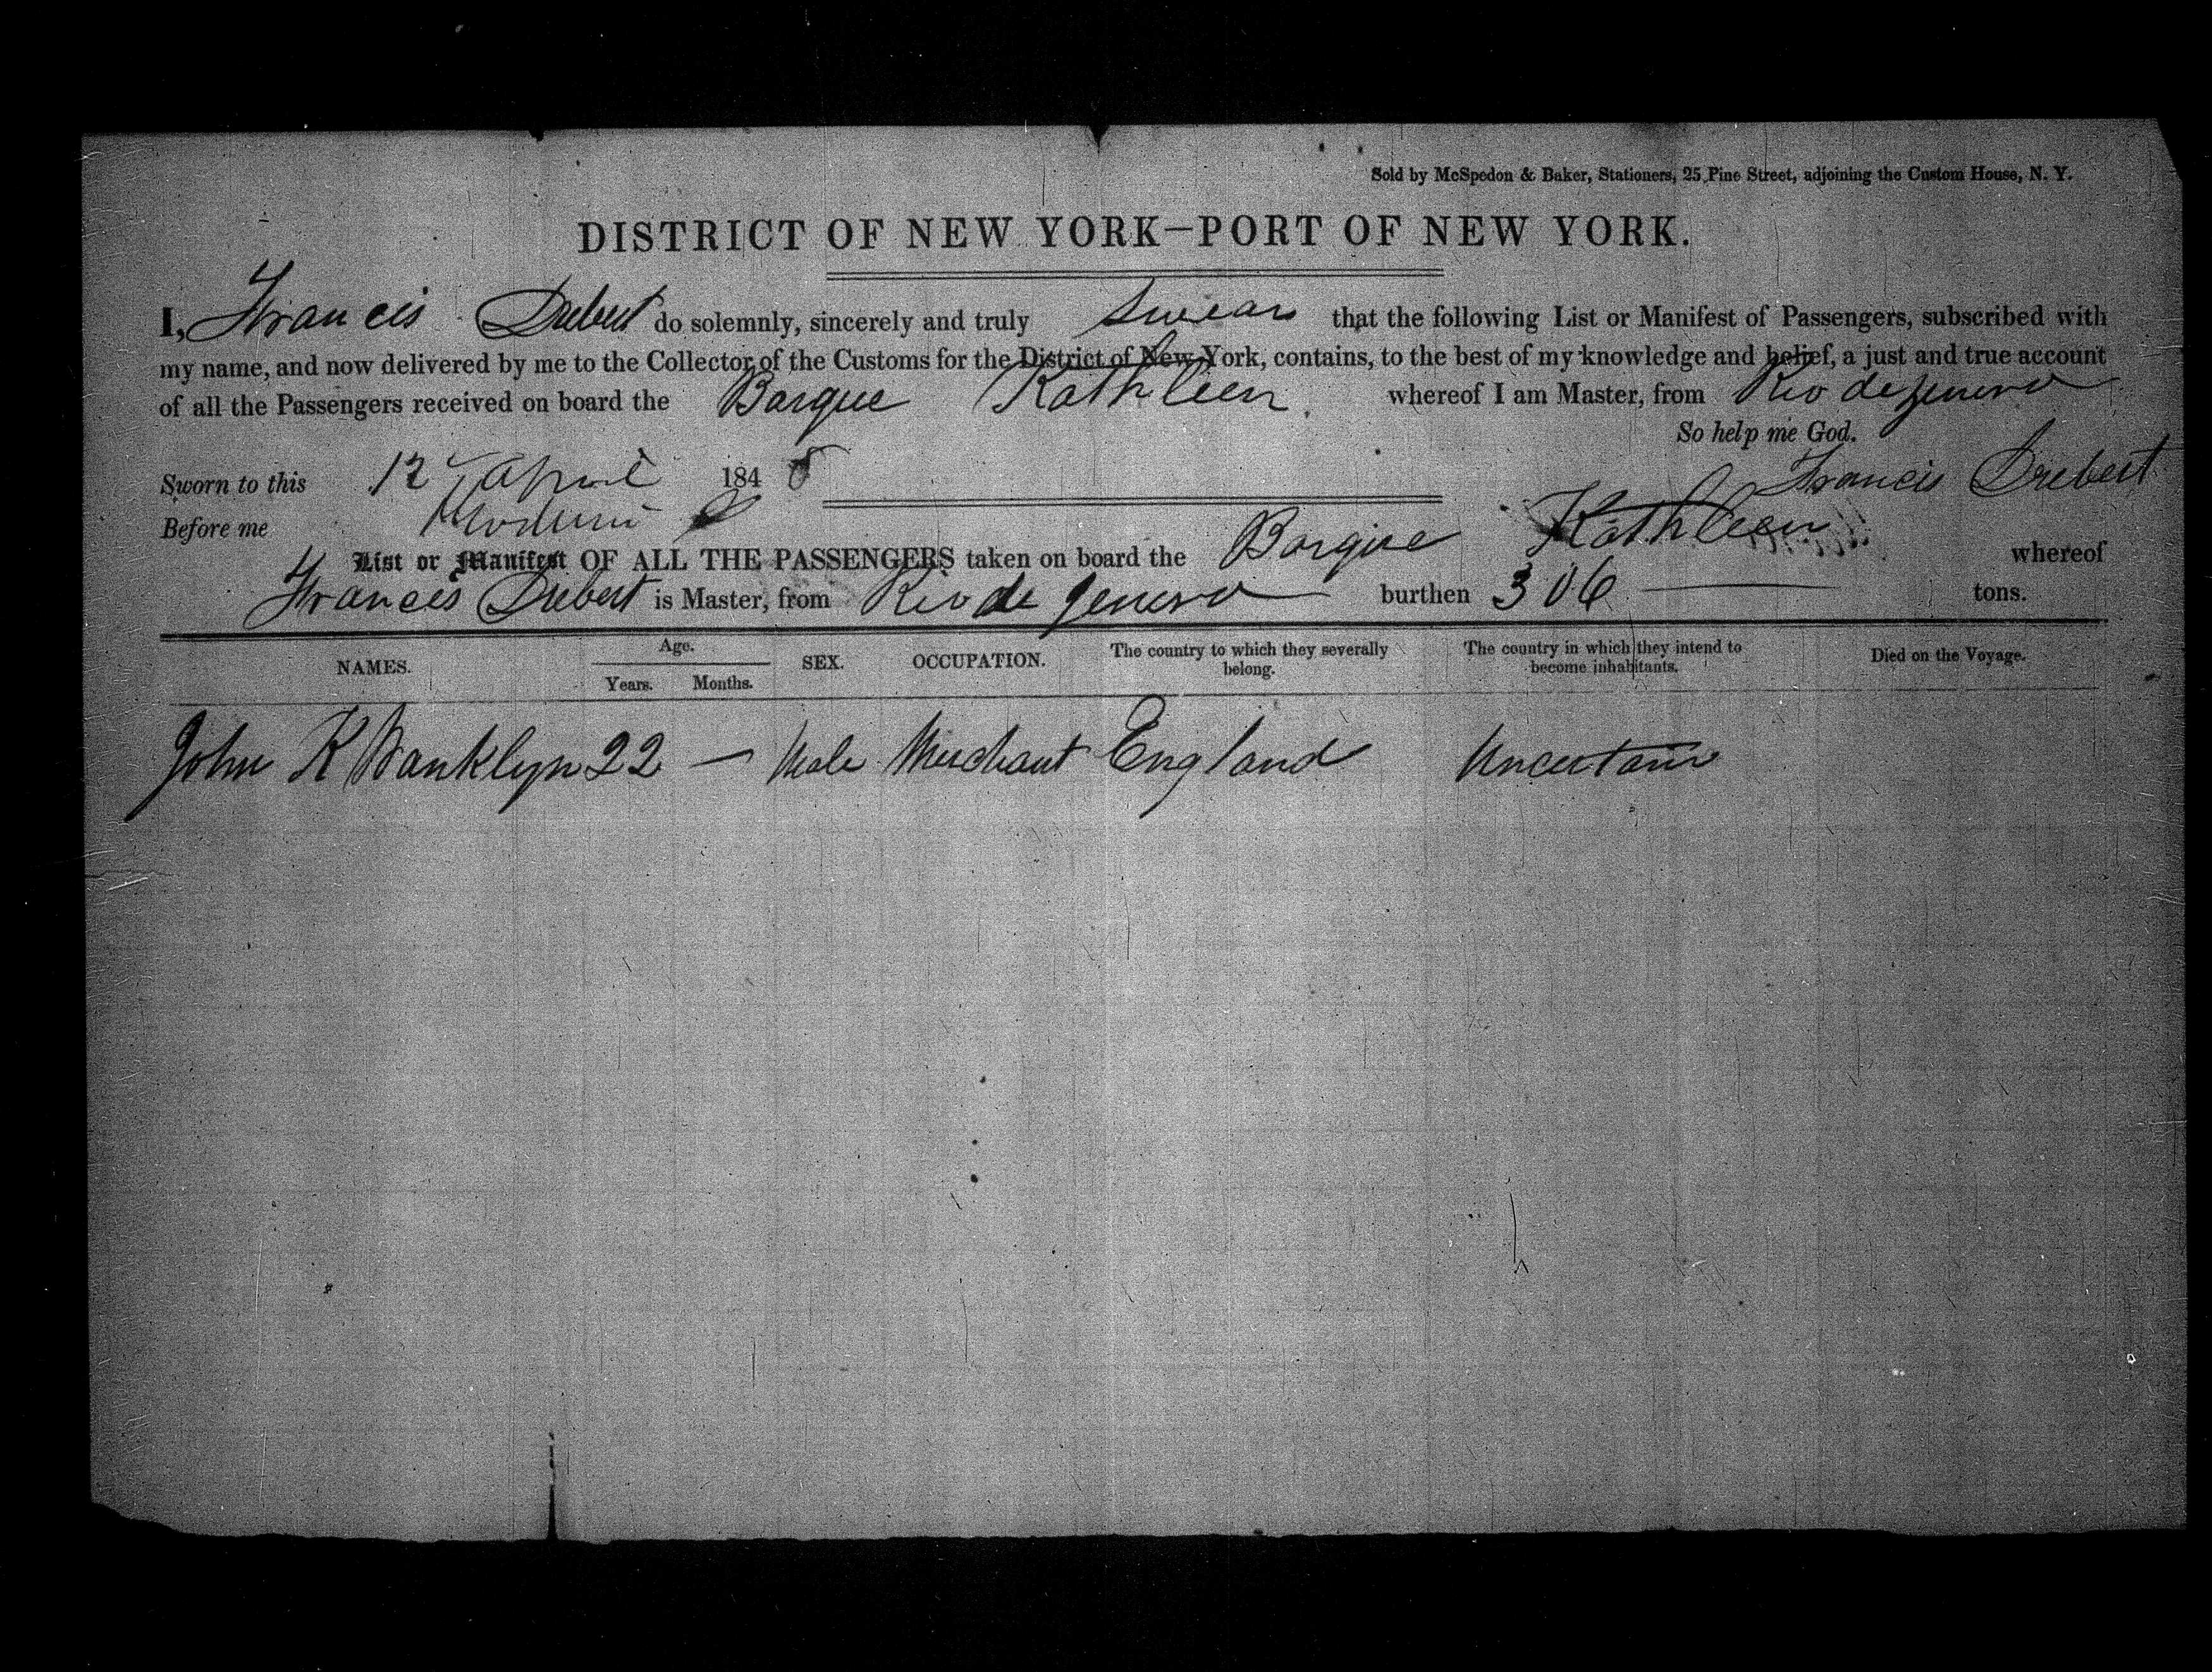 Sold by McSpedon & Baker, Stationers, 25 Pine Street, adjoining the Custom House, N. Y.
DISTRICT OF NEW YORK—PORT OF NEW YORK.
I, Francis Drebert do solemnly, sincerely and truly swear that the following List or Manifest of Passengers, subscribed with
my name, and now delivered by me to the Collector of the Customs for the District of New York, contains, to the best of my knowledge and belief, a just and true account
of all the Passengers received on board the Barque Kathleen whereof I am Master, from Rio de Genero
So help me God.
Sworn to this 12 April 1848 Francis Drebert
Before me
List or Manifest OF ALL THE PASSENGERS taken on board the Barque Kathleen whereof
Francis Drebert is Master, from Rio de Genero burthen 306 tons.
NAMES. Age. Years. Months. SEX. OCCUPATION. The country to which they severally belong. The country in which they intend to become inhabitants. Died on the Voyage.
John K Wanklyn 22 — Male Merchant England Uncertain